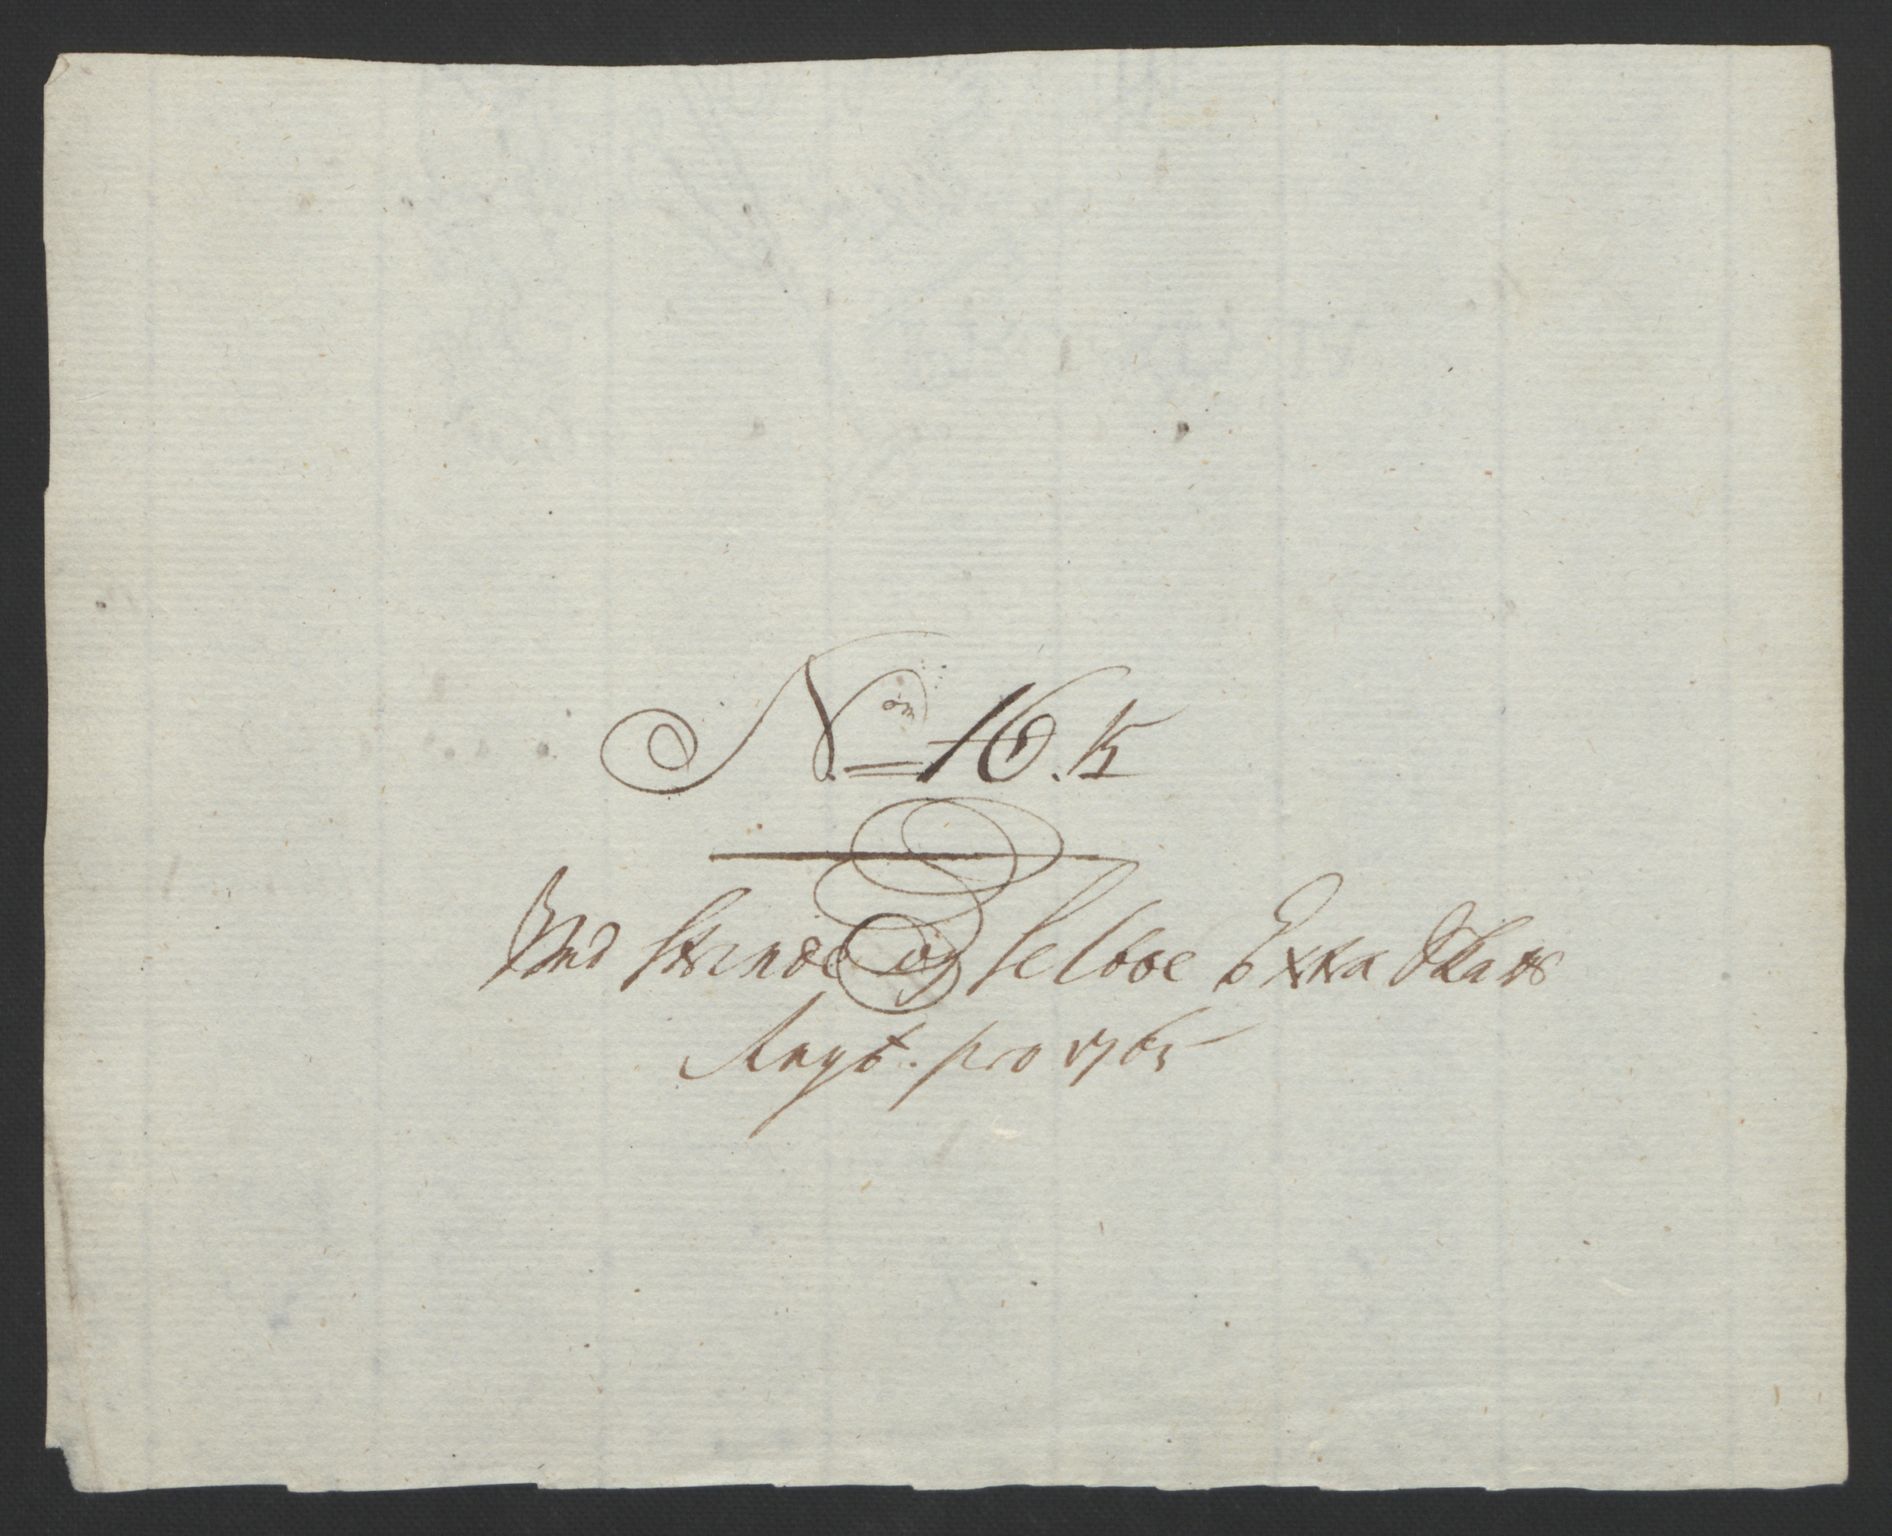 No 16. K
Ved Strinde og Selboe Extra Skatts
Regt. pro 1765